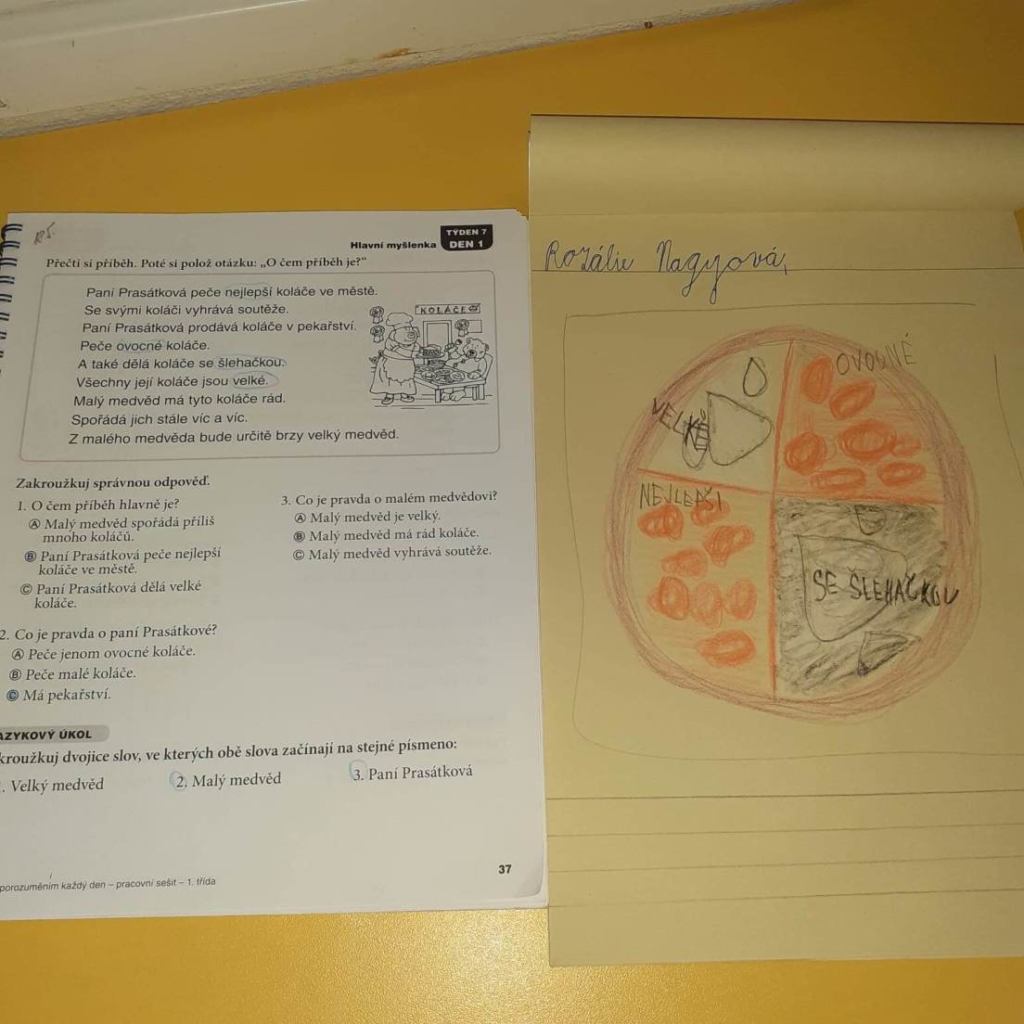 TÝDEN 7
Hlavní myšlenka DEN 1
Přečti si příběh. Poté si polož otázku: „O čem příběh je?"
Paní Prasátková peče nejlepší koláče ve městě.
Se svými koláči vyhrává soutěže.
Paní Prasátková prodává koláče v pekařství.
Peče ovocné koláče.
A také dělá koláče se šlehačkou.
Všechny její koláče jsou velké.
Malý medvěd má tyto koláče rád.
Spořádá jich stále víc a víc.
Z malého medvěda bude určitě brzy velký medvěd.
KOLÁČE
Zakroužkuj správnou odpověď.
1. O čem příběh hlavně je?
Ⓐ Malý medvěd spořádá příliš
mnoho koláčů.
Ⓑ Paní Prasátková peče nejlepší
koláče ve městě.
Ⓒ Paní Prasátková dělá velké
koláče.
2. Co je pravda o paní Prasátkové?
Ⓐ Peče jenom ovocné koláče.
Ⓑ Peče malé koláče.
Ⓒ Má pekařství.
3. Co je pravda o malém medvědovi?
Ⓐ Malý medvěd je velký.
Ⓑ Malý medvěd má rád koláče.
Ⓒ Malý medvěd vyhrává soutěže.
AZYKOVÝ ÚKOL
kroužkuj dvojice slov, ve kterých obě slova začínají na stejné písmeno:
. Velký medvěd 2. Malý medvěd 3. Paní Prasátková
37
porozuměním každý den – pracovní sešit – 1. třída
Rozálie Nagyová,
VELKÉ
OVOCNÉ
NEJLEPŠI
SE ŠLEHAČKOU